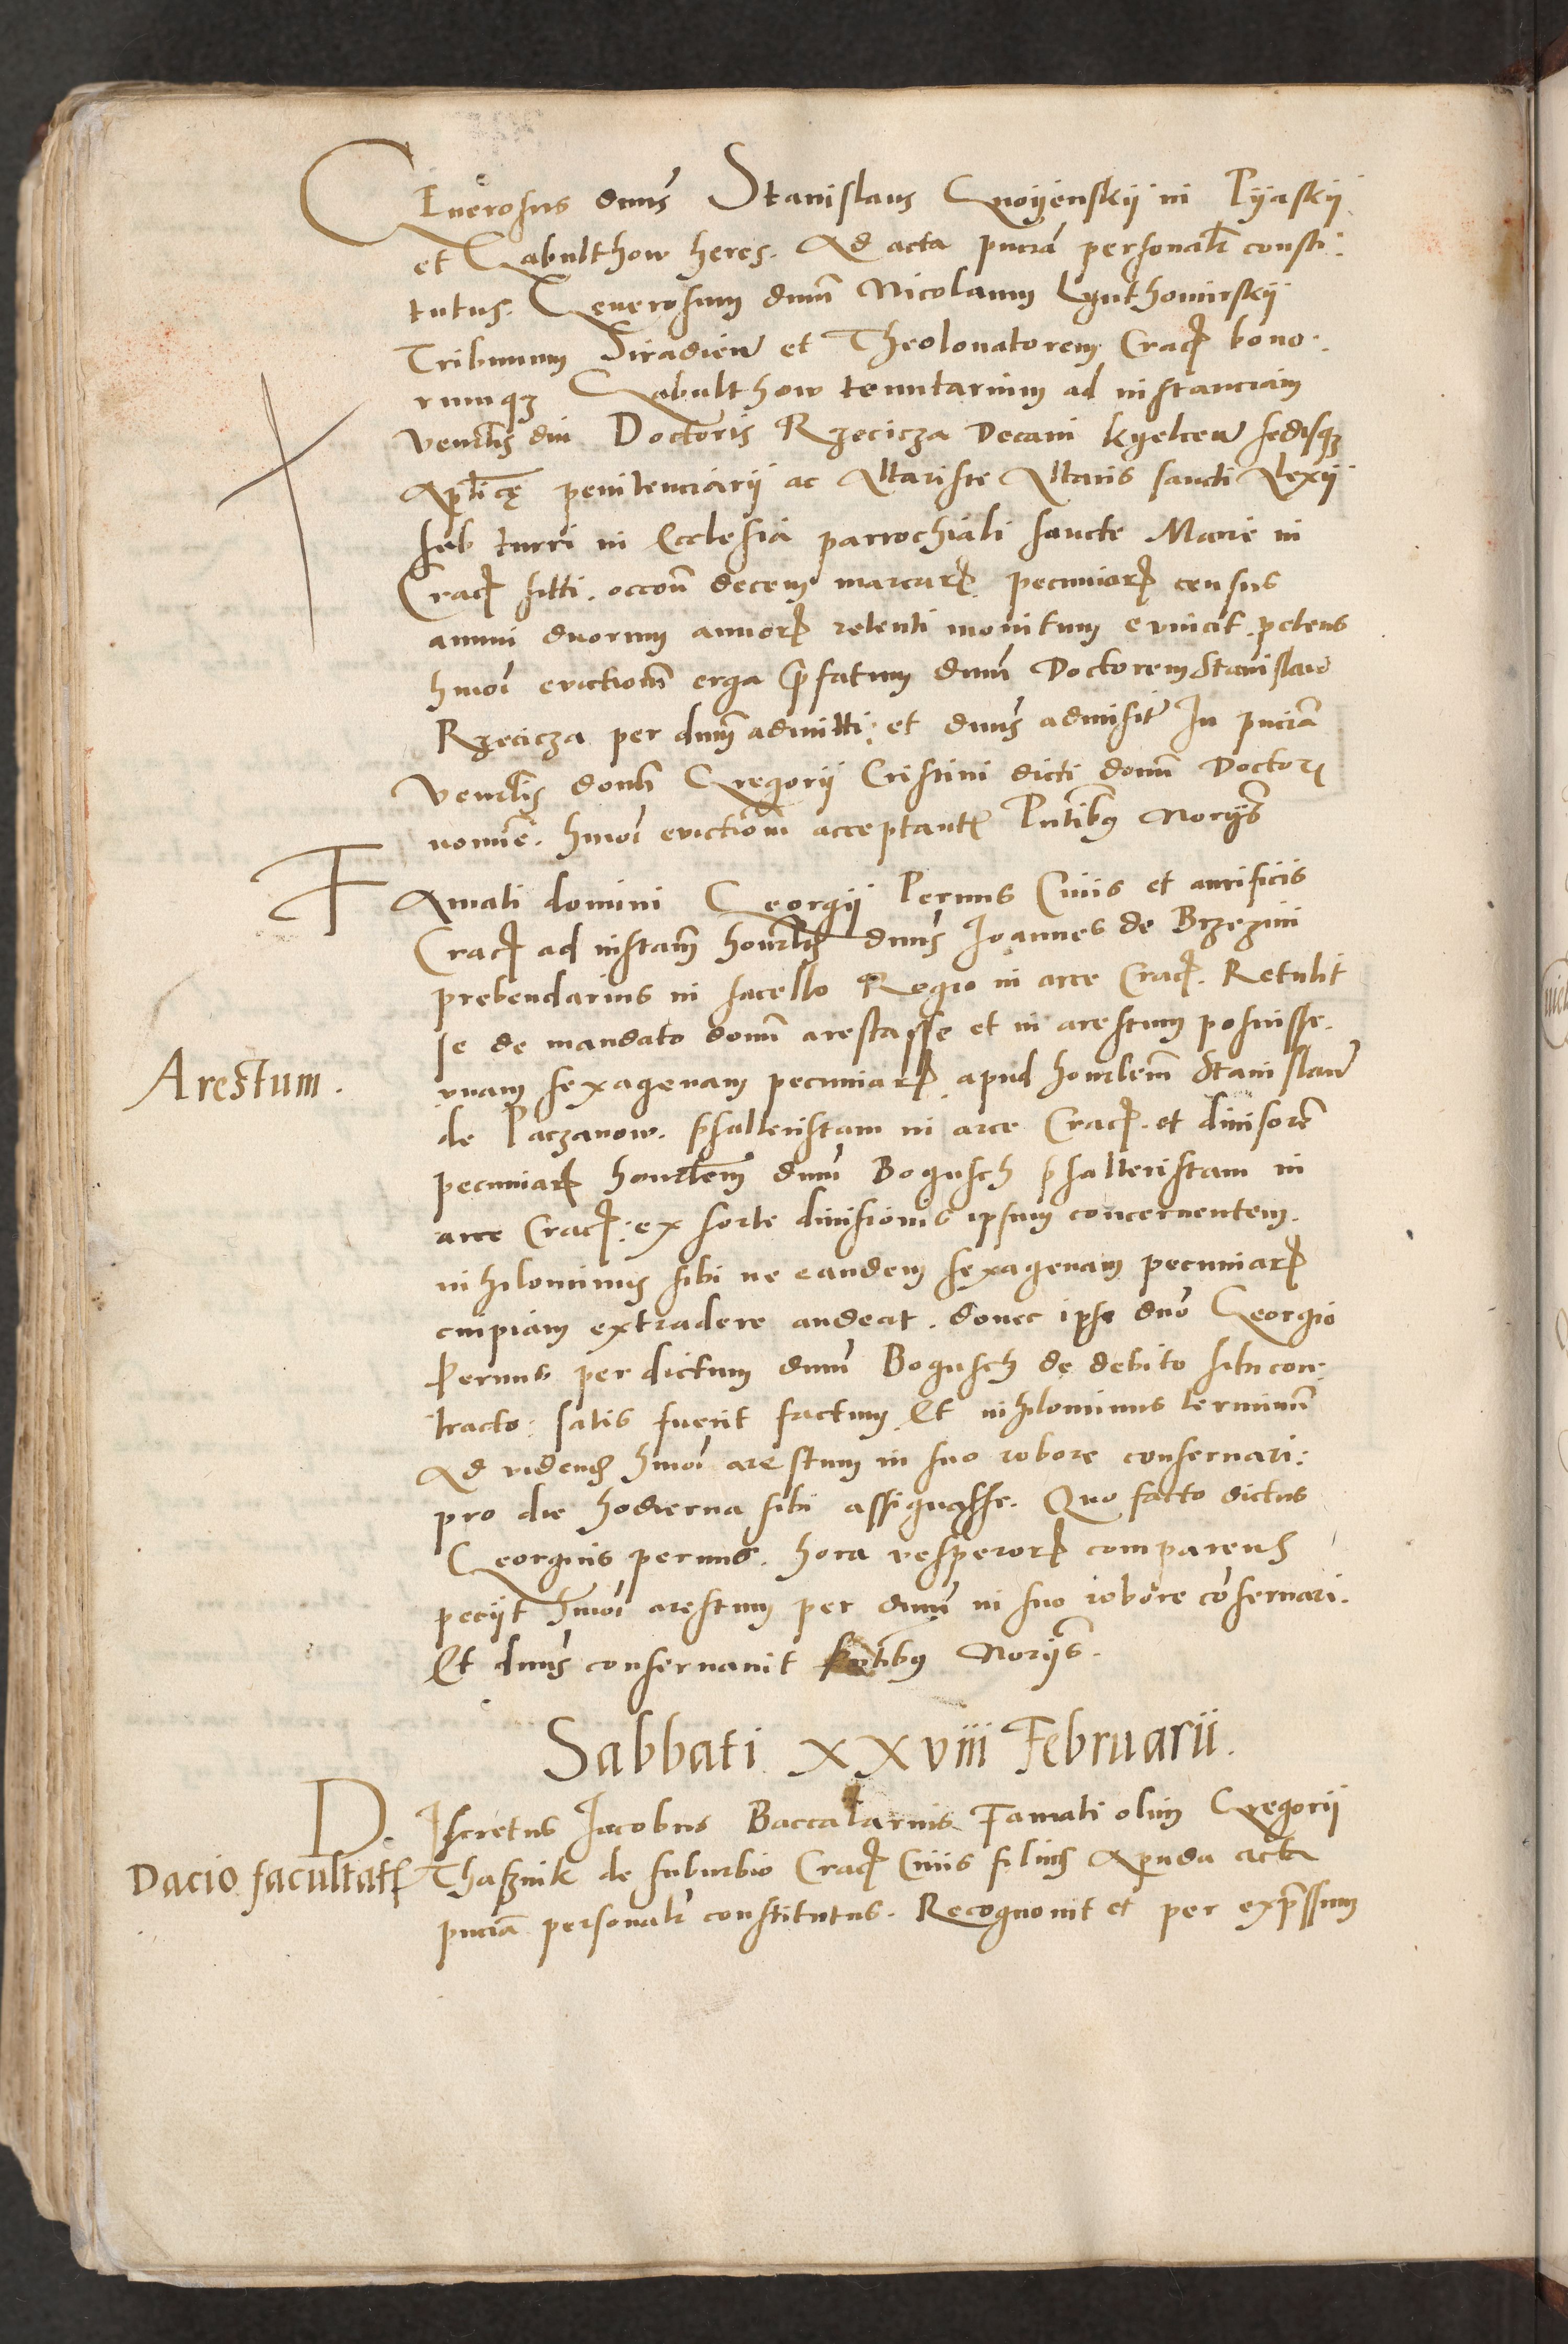 GEnerosus dnus Stanislaus Gnoyenskÿ in Pÿaskÿ
et Gabulthow heres. Ad acta pnciã personalr consti:
tutus. Generosum dnum Nicolaum Lquthomirskÿ
Tribunum Siradien et Theolonatorem Crac bono:
rumqz Gabulthow tenutarium ad instanciam
venerlis dni Doctoris Rzeczicza Decani kyelcen sedisqz
Aplicę penitenciarij ac Altariste Altaris sancti Alexij
sub turri in Ecclesia parrochiali sancte Marie in
Crac siti. occon̄e decem marcar pecuniar census
annui duorum annor retenti monitum evincit. petens
hmoi evictionē erga p̄fatum dnum Doctorem Stanislaū
Rzeczicza per dnum admitti: et dnus admisit In pnciã
venerlis domi Gregorij Cristini dicti domi Doctoris
nomine. hmoi evictionem acceptante Pntibus Norijs
FAmati domini Georgij Pernus Civis et aurificis
Crac ad instam honorlis dnus Joannes de Brzezini
prebendarius in sacello Regio in arce Crac. Retulit
se de mandato domi arestasse et in arestum posuisse.
vnam sexagenam pecuniar. apud honorlem Stanislaū
de Paczanow. psalteristam in arce Crac. et divisorē
pecuniar honorlem dnum Bogusch psalteristam in
arce Crac: ex sorte divisionis ipsum concernentem.
nihilominus sibi ne eandem sexagenam pecuniar
cuipiam extradere audeat. donec ipse dno Georgio
Pernus per dictum dnum Bogusch de debito sibi con:
tracto: satis fuerit factum Et nihilominus terminū
Ad vidend hmoi arestum in suo robore conservari:
pro die hodierna sibi assignasse. Quo facto dictus
Georgius pernus. hora vesperor comparens
petijt hmoi arestum per dnum in suo robore cōservari.
Et dnus conservavit pntibus Norijs.
Arestum.
Sabbati xxviii Februarii.
DIscretus Jacobus Baccalarius Famati olim Gregorii
Dacio facultatis
Thasznik de suburbio Crac Civis filius Apud acta
pnciã personalr constitutus. Recognovit et per expssum